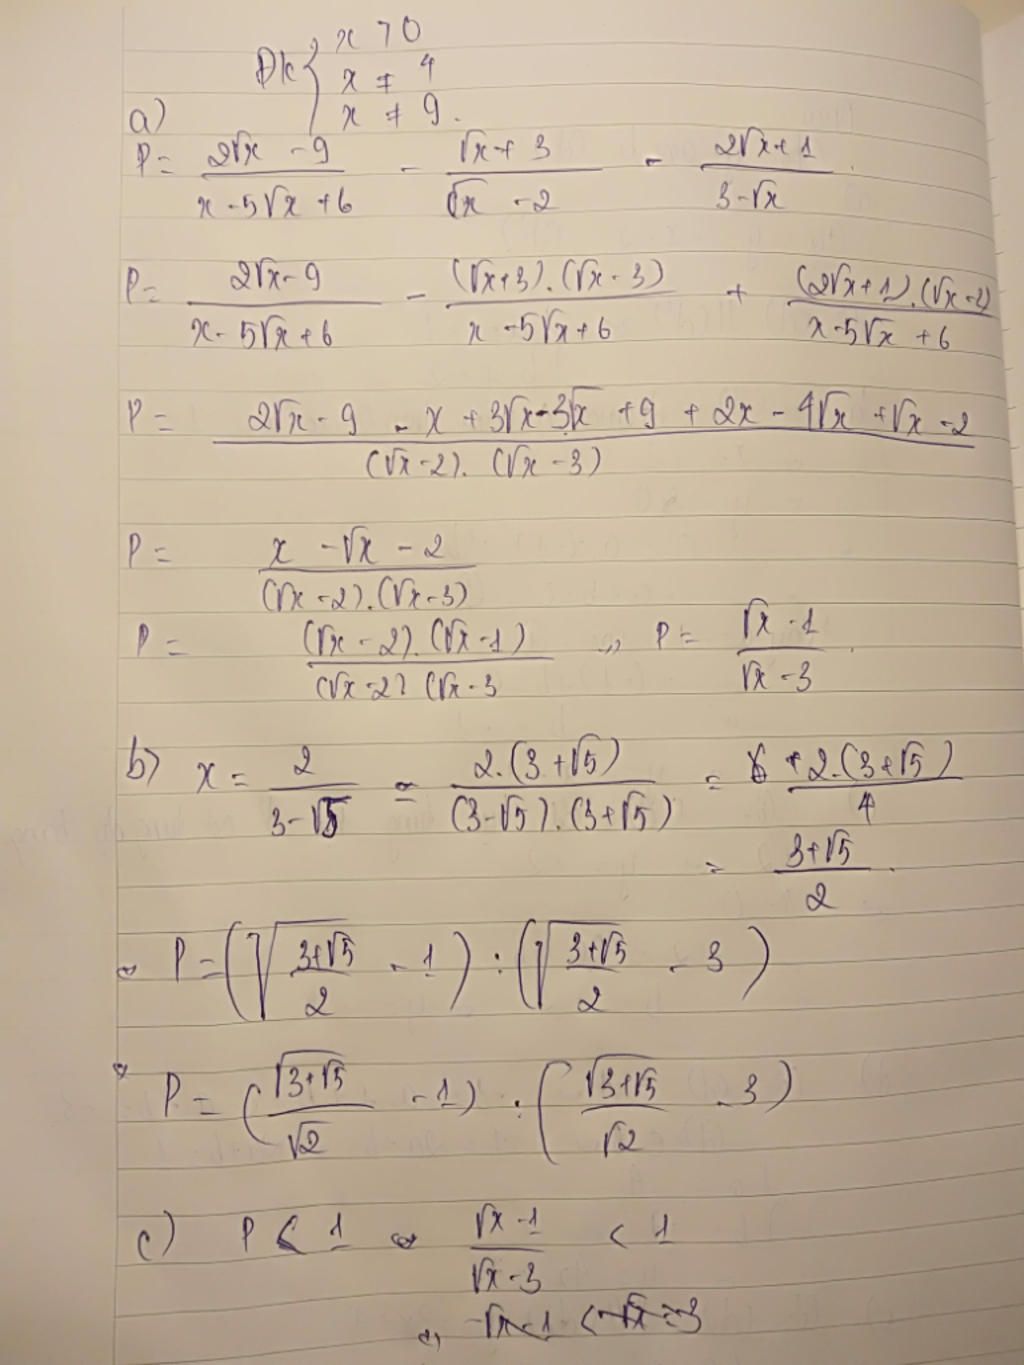 Đk { x > 0
x ≠ 4
x ≠ 9.
a)
P = (2√x - 9)/(x - 5√x + 6) - (√x + 3)/(√x - 2) - (2√x + 1)/(3 - √x).
P = (2√x - 9)/(x - 5√x + 6) - ((√x + 3).(√x - 3))/(x - 5√x + 6) + ((2√x + 1).(√x - 2))/(x - 5√x + 6)
P = (2√x - 9 - x + 3√x - 3√x + 9 + 2x - 4√x + √x - 2)/((√x - 2).(√x - 3))
P = (x - √x - 2)/((√x - 2).(√x - 3))
P = ((√x - 2).(√x - 1))/((√x - 2)(√x - 3 ⇔ P = (√x - 1)/(√x - 3).
b) x = 2/(3 - √5) = (2.(3 + √5))/((3 - √5).(3 + √5)) = (6 + 2.(3 + √5))/4
= (3 + √5)/2.
⇔ P = (√((3 + √5)/2) - 1) : (√((3 + √5)/2) - 3)
⇔ P = (√(3 + √5)/√2 - 1) : (√(3 + √5)/√2 - 3)
c) P < 1 ⇔ (√x - 1)/(√x - 3) < 1
⇔ √x - 1 < √x - 3